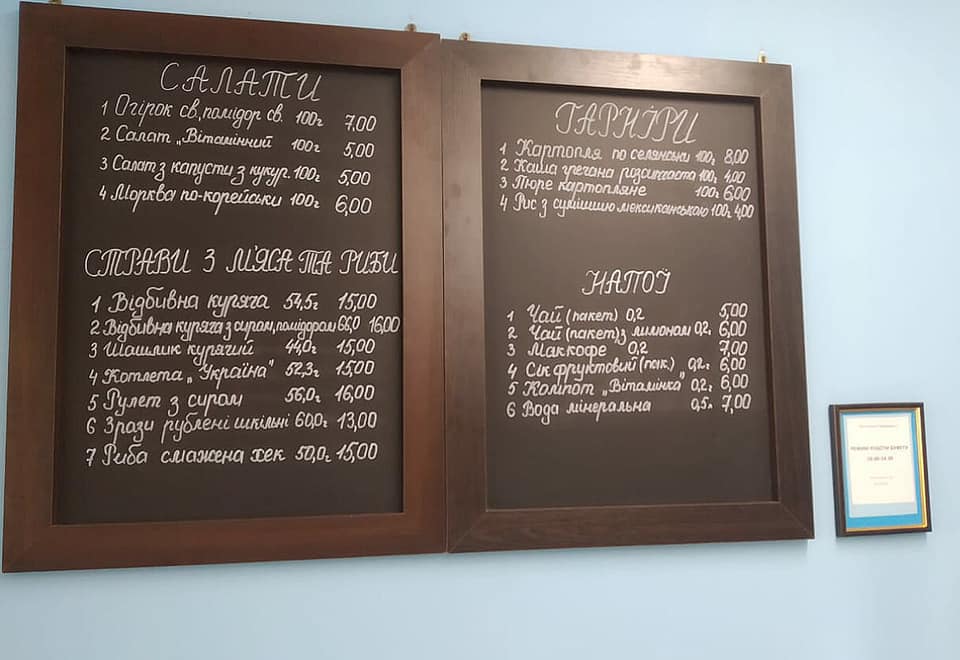 САЛАТИ
1 Огірок св., помідор св. 100г 7,00
2 Салат „Вітамінний 100г 5,00
3 Салат з капусти з кукур. 100г 5,00
4 Морква по-корейськи 100г 6,00
СТРАВИ З М'ЯСА ТА РИБИ
1 Відбивна куряча 54,5г 15,00
2 Відбивна куряча з сиром, помідором 66,0 16,00
3 Шашлик курячий 44,0г 15,00
4 Котлета „Україна" 52,3г 15,00
5 Рулет з сиром 56,0г 16,00
6 Зрази рублені шкільні 60,0г 13,00
7 Риба смажена хек 50,0г 15,00
ГАРНІРИ
1 Картопля по селянськи 100г 8,00
2 Каша гречана розсипчаста 100г 4,00
3 Пюре картопляне 100г 6,00
4 Рис з сумішшю мексиканською 100г 4,00
НАПОЇ
1 Чай (пакет) 0,2 5,00
2 Чай (пакет) з лимоном 0,2. 6,00
3 Маккофе 0,2 7,00
4 Сік фруктовий (пак.) 0,2г 6,00
5 Компот „Вітамінка" 0,2г 6,00
6 Вода мінеральна 0,5л 7,00
РЕЖИМ РОБОТИ БУФЕТУ